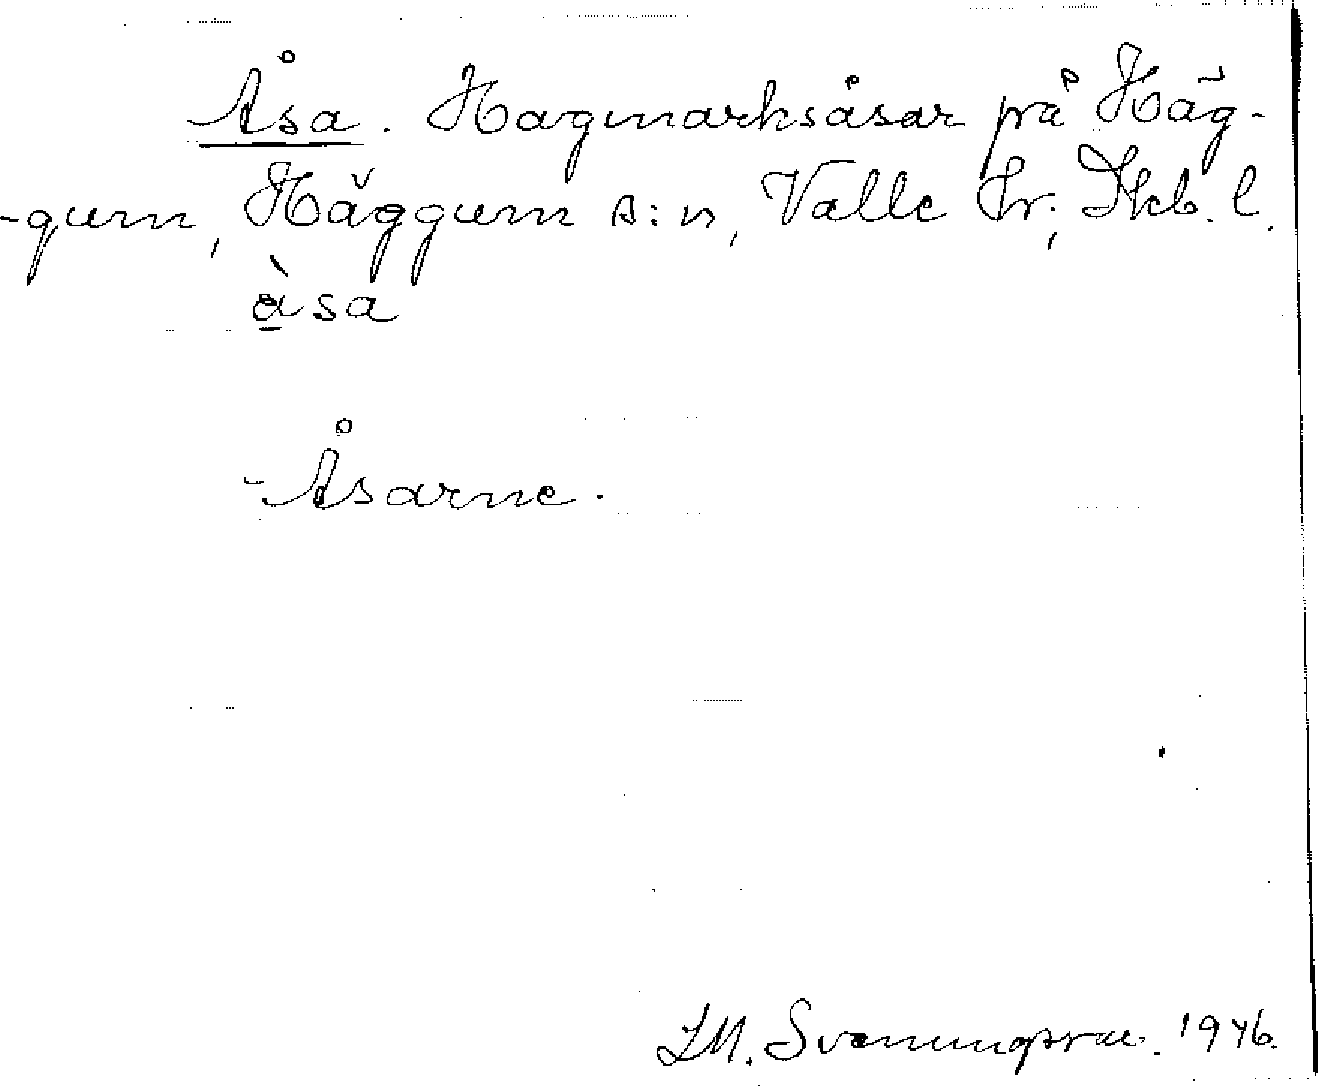 Åsa. Hagmarksåsar på Häg-
-gum, Häggum s:n, Valle hr; Skb. l.
åsa
-Åsarne.
J.M. Svenungsson. 1946.